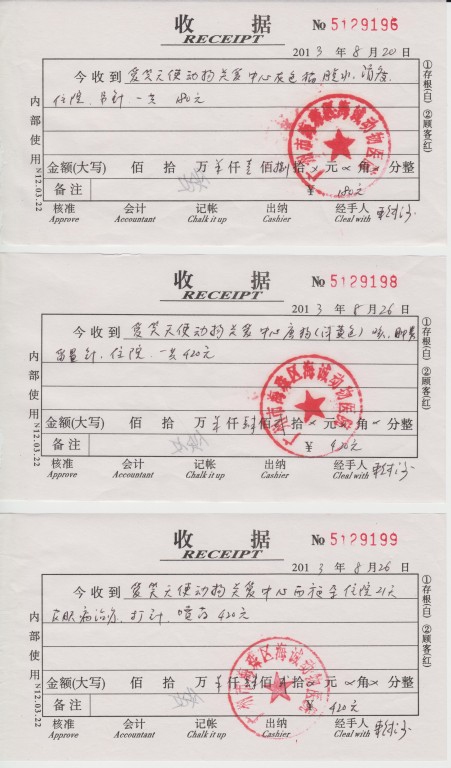 收 据 No 5129196
RECEIPT
2013 年 8 月 20 日
今收到 爱笑天使动物关爱中心灰色猫 脱水、消炎
住院、吊针 一共 180元
金额(大写) 佰 拾 万 仟 壹 佰 捌 拾 元 角 分整
备注 ¥ 180元
核准 会计 记帐 出纳 经手人
Approve Accountant Chalk it up Cashier Cleal with
内部使用 N12.03.22
①存根(白) ②顾客(红)
广州市海珠区海诚动物医院
收 据 No 5129198
RECEIPT
2013 年 8 月 26 日
今收到 爱笑天使动物关爱中心唐狗(浅黄色)
留置针、住院、一共420元
金额(大写) 佰 拾 万 仟 肆 佰 贰 拾 元 角 分整
备注 ¥ 420元
核准 会计 记帐 出纳 经手人
Approve Accountant Chalk it up Cashier Cleal with
内部使用 N12.03.22
①存根(白) ②顾客(红)
广州市海珠区海诚动物医院
收 据 No 5129199
RECEIPT
2013 年 8 月 26 日
今收到 爱笑天使动物关爱中心西施全住院21天
皮肤病治疗、打针、喷药 420元
金额(大写) 佰 拾 万 仟 肆 佰 贰 拾 元 角 分整
备注 ¥ 420元
核准 会计 记帐 出纳 经手人
Approve Accountant Chalk it up Cashier Cleal with
内部使用 N12.03.22
①存根(白) ②顾客(红)
广州市海珠区海诚动物医院